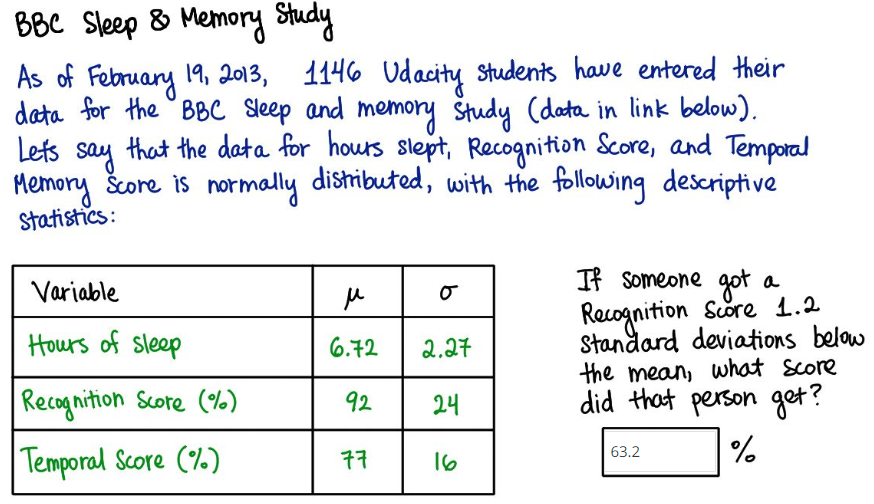 BBC Sleep & Memory Study
As of February 19, 2013, 1146 Udacity students have entered their
data for the BBC Sleep and memory Study (data in link below).
Lets say that the data for hours slept, Recognition Score, and Temporal
Memory Score is normally distributed, with the following descriptive
statistics:
Variable μ σ
Hours of sleep 6.72 2.27
Recognition Score (%) 92 24
Temporal Score (%) 77 16
If someone got a
Recognition Score 1.2
standard deviations below
the mean, what score
did that person get?
63.2 %